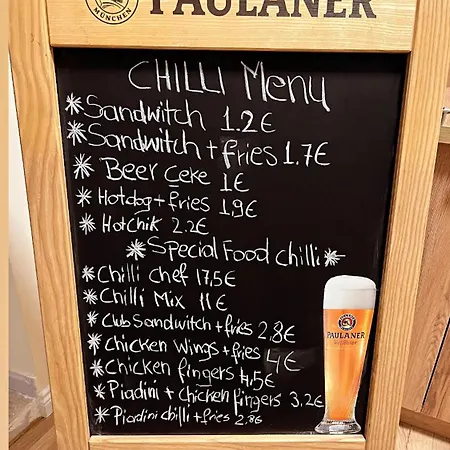 PAULANER
MÜNCHEN
CHILLI Menu
Sandwitch 1.2€
Sandwitch + fries 1.7€
Beer ceke 1€
Hotdog + fries 1,9€
Hotchik 2.2€
Special Food chilli
Chilli chef 17,5€
Chilli Mix 11€
Club Sandwitch + fries 2,8€
Chicken Wings + fries 4€
Chicken fingers 4,5€
Piadini + Chicken fingers 3,2€
Piadini chilli + fries 2.8€
PAULANER